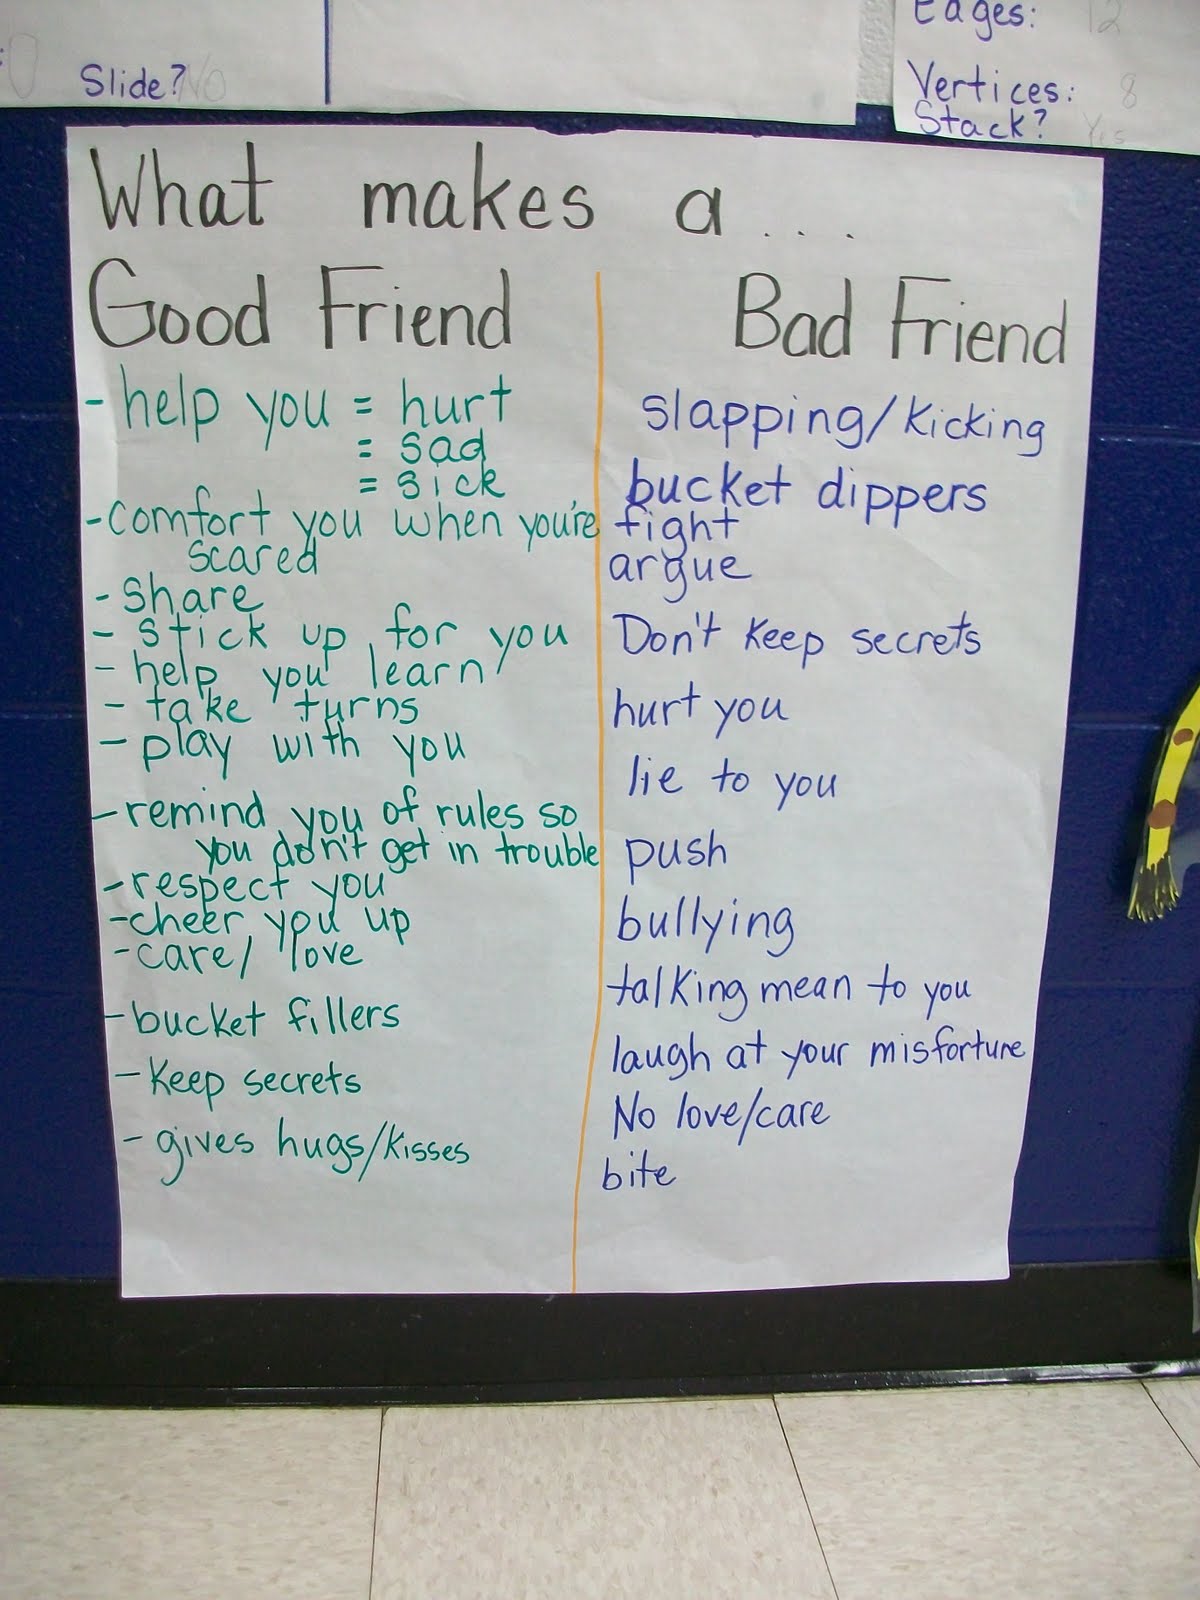 Slide? No
Edges: 12
Vertices: 8
Stack? Yes
What makes a ...
Good Friend
- help you = hurt
= sad
= sick
- comfort you when you're
scared
- share
- stick up for you
- help you learn
- take turns
- play with you
- remind you of rules so
you don't get in trouble
- respect you
- cheer you up
- care/ love
- bucket fillers
- Keep secrets
- gives hugs/kisses
Bad Friend
slapping/kicking
bucket dippers
fight
argue
Don't keep secrets
hurt you
lie to you
push
bullying
talking mean to you
laugh at your misfortune
No love/care
bite